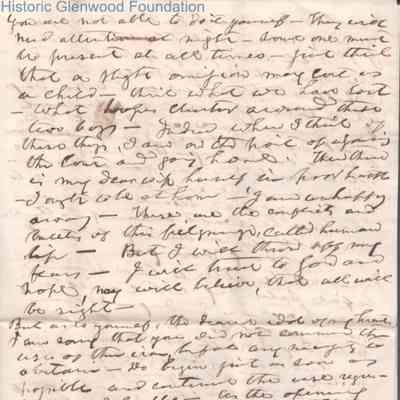 Historic Glenwood Foundation
You are not able to do it yourself — They will
need attention at night — some one must
be present at all times — just think
that a slight omission may cost us
a child — think what we have lost
— what hopes cluster around these
two boys — Indeed when I think of
these things, I am on the point of again
the Court and going home. Then there
is my dear wife herself in poor health
— I ought to be at home — I am unhappy
away — These, are the conflicts and
of this pilgrimage, called human
life — But I will throw off my
fears — I will trust to God and
hope, nay will believe, that all will
be right —
But as to yourself, the dearest idol of my heart
I am sorry that you did not commence the
use of the iron, before any
obtain — Do begin just as soon as
possible and continue the use
the opening